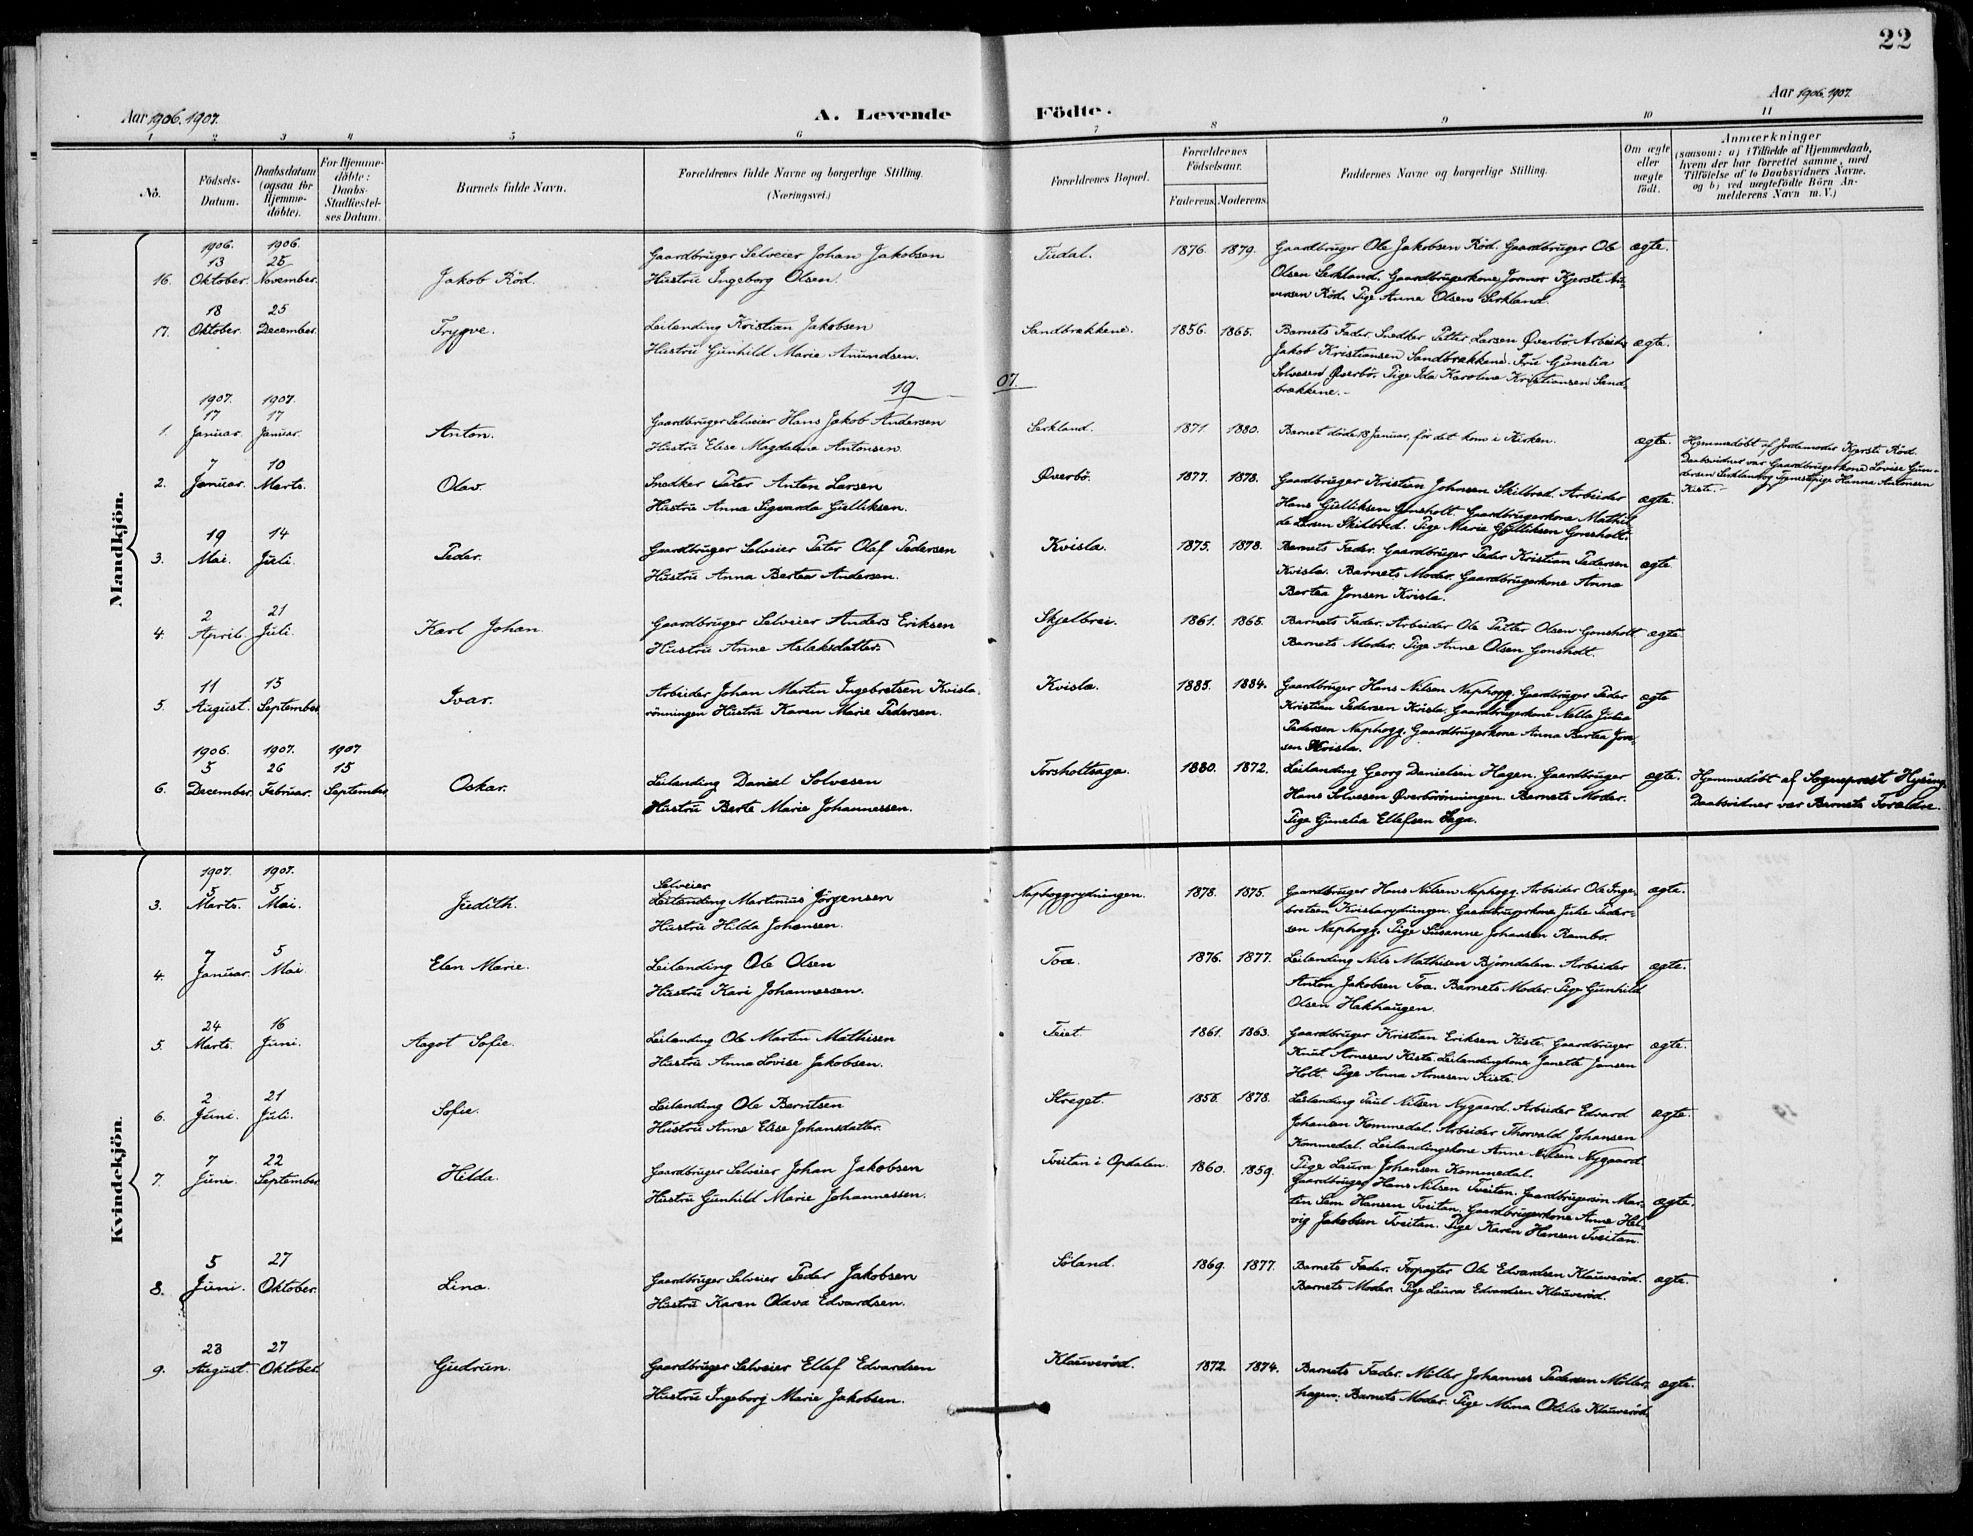 22
Aar 1906. 1907.
A. Levende Födte.
Aar 1906. 1907.
1 2 3 4 5 6 7 8 9 10 11
No.
Födsels-
Datum.
Daabsdatum
(ogsaa for
Hjemme-
döbte).
For Hjemme-
döbte:
Daabs-
Stadfæstel-
ses Datum.
Barnets fulde Navn.
Forældrenes fulde Navne og borgerlige Stilling.
(Næringsvei.)
Forældrenes Bopæl.
Forældrenes
Födselsaar.
Faderens. Moderens.
Faddernes Navne og borgerlige Stilling.
Om ægte
eller
uægte
födt.
Anmærkninger
(saasom: a) i Tilfælde af Hjemmedaab,
hvem der har forrettet samme, med
Tilföielse af to Daabsvidners Navne.
og b) ved uægtefödte Börn An-
melderens Navn m. V.)
Mandkjön.
1906. 1906.
13 25
16. Oktober. November.
Jakob Röd.
Gaardbruger Selveier Johan Jakobsen
Hustru Ingeborg Olsen.
Tudal.
1876. 1879.
Gaardbruger Ole Jakobsen Röd. Gaardbruger Ole
Olsen Serkland. Gaardbrugerkone Jormor Kjerste An-
ersen Röd. Pige Anne Olsen Serkland.
ægte.
18 25
17. Oktober. December.
Trygve.
Leilending Kristian Jakobsen
Hustru Gunhild Marie Anundsen.
Sandbrækkene.
1856. 1865.
Barnets Fader. Snedker Petter Larsen Øverbö. Arbeider
Jakob Kristiansen Sandbrækkene. Fru Gunelia
Solvesen Øverbö. Pige Ida Karoline Kristiansen Sand-
brækkene.-
ægte.
19 07
1907. 1907.
17 17
1. Januar. Januar.
Anton.
Gaardbruger Selveier Hans Jakob Andersen
Hustru Elise Magdalene Antonsen.
Serkland.
1871 1880.
Barnet döde 18 Januar, för det kom i Kirken.
ægte.
Hjemmedöbt af Jordemoder Kjersti Röd.
Daabsvidner var Gaardbrugerkone Lovise Gun-
dersen Serkland og Tjenestepige Hanna Antonsen
Kiste.-
7 10
2. Januar. Marts.
Olav.
Snedker Peter Anton Larsen
Hustru Anna Sigvarda Gulliksen.
Øverbö.
1877. 1878.
Gaardbruger Kristian Johnsen Skilbred. Arbeider
Hans Gulliksen Gonsholt. Gaardbrugerkone Mathil-
de Larsen Skilbred. Pige Marie Gulliksen Gonsholt.
ægte.
19 14
3. Mai. Juli.
Peder.
Gaardbruger Selveier Peter Olaf Pedersen
Hustru Anna Bertea Andersen.
Kvisla.
1875. 1878.
Barnets Fader. Gaardbruger Peder Kristian Pedersen
Kvisla. Barnets Moder. Gaardbrugerkone Anna
Bertea Jonsen Kvisla.
ægte
2 21
4. April. Juli.
Karl Johan.
Gaardbruger Selveier Anders Eriksen
Hustru Anne Aslaksdatter.
Skjelbrei.
1861. 1865.
Barnets Fader. Arbeider Ole Petter Olsen Gonsholt
Barnets Moder. Pige Anne Olsen Gonsholt.
ægte
11 15
5. August. September.
Ivar.
Arbeider Johan Martin Ingebretsen Kvisla-
rönningen Hustru Karen Marie Pedersen.
Kvisla.
1885. 1884.
Gaardbruger Hans Nilsen Naphogg. Gaardbruger Peder
Kristian Pedersen Kvisla. Gaardbrugerkone Nella Julia
Pedersen Naphogg. Gaardbrugerkone Anna Bertea Jon-
sen Kvisla.
ægte
1906. 1907. 1907
5 26 15
6. December. Februar. September.
Oskar.
Leilending Daniel Solvesen
Hustru Berte Marie Johannessen.
Torsholtsaga.
1880. 1872.
Leilending Georg Danielsen Hagen. Gaardbruger
Hans Solvesen Øverbörönningen. Barnets Moder.
Pige Gunelia Ellefsen Saga.
ægte.
Hjemmedöbt af Sogneprest Hysing.
Daabsvidner var Barnets Forældre.
Kvindekjön.
1907. 1907.
5 5
3. Marts. Mai.
Judith.
Selveier
Leilending Martinius Jörgensen
Hustru Hilda Johansen.
Naphoggrydningen.
1878. 1875.
Gaardbruger Hans Nilsen Naphogg. Arbeider Ole Inge-
bretsen Kvislarydningen. Gaardbrugerkone Julie Peder-
sen Naphogg. Pige Susanne Johansen Rambo.
ægte.
7 5
4. Januar. Mai.
Elen Marie.
Leilending Ole Olsen
Hustru Kari Johannessen.
Toa.
1876. 1877.
Leilending Nils Mathisen Björndalen. Arbeider
Anton Jakobsen Toa. Barnets Moder. Pige Gunhild
Olsen Hakhaugen.
ægte.
24 16
5. Marts. Juni.
Aagot Sofie.
Leilending Ole Martin Mathisen
Hustru Anna Lovise Jakobsen.
Teiet.
1861. 1863.
Gaardbruger Kristian Eriksen Kiste. Gaardbruger
Knut Arnesen Kiste. Leilendingkone Janette Jansen
Holt. Pige Anna Arnesen Kiste.
ægte.
2 21
6. Juni. Juli.
Sofie.
Leilending Ole Berntsen
Hustru Anne Elise Johansdatter.
Streget.
1856. 1878.
Leilending Paul Nilsen Nygaard. Arbeider Edvard
Johansen Kommedal. Arbeider Thorvald Johansen
Kommedal. Leilendingkone Anne Nilsen Nygaard.
Pige Laura Johansen Kommedal.
ægte.
7 22
7. Juni. September.
Hilda.
Gaardbruger Selveier Johan Jakobsen
Hustru Gunhild Marie Johannessen.
Tveitan i Opdalen.
1860. 1859.
Gaardbruger Hans Nilsen Tveitan. Gaardbrugersön Mar-
tin Sem Hansen Tveitan. Gaardbrugerkone Anne Hel-
vig Jakobsen Tveitan. Pige Karen Hansen Tveitan.
ægte.
5 27
8. Juni. Oktober.
Lina.
Gaardbruger Selveier Peder Jakobsen
Hustru Karen Olava Edvardsen.
Söland.
1869. 1877.
Barnets Fader. Forpagter Ole Edvardsen Klauveröd.
Barnets Moder. Pige Laura Edvardsen Klauveröd.
ægte.
23 27
9. August. Oktober.
Gudrun.
Gaardbruger Selveier Ellef Edvardsen
Hustru Ingeborg Marie Jakobsen.
Klauveröd.
1872. 1874.
Barnets Fader. Möller Johannes Pedersen Möller-
hagen. Barnets Moder. Pige Mina Otilie Klauveröd.
ægte.